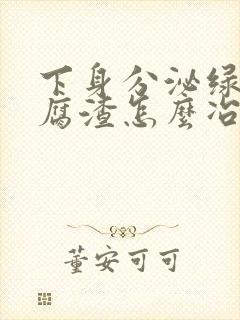 下身分泌绿
腐渣怎麽治
董安可可